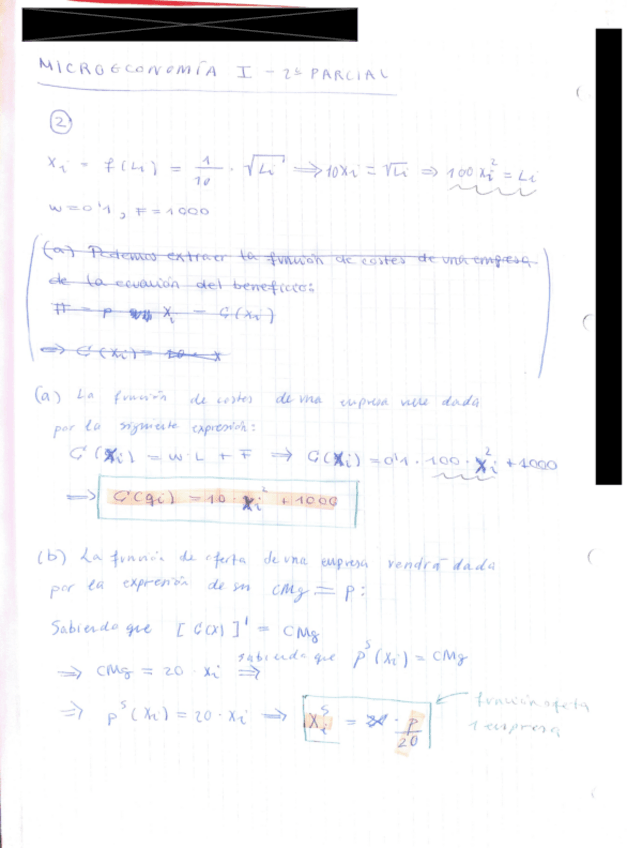 MICROECONOMÍA I - 2º PARCIAL
2
Xi = f(Li) = 1/10 · √Li ⟹ 10Xi = √Li ⟹ 100 Xi² = Li
w=0'1, F=1000
(a) Podemos extraer la función de costes de una empresa
de la ecuación del beneficio:
π = p Xi - C(Xi)
⟹ C(Xi) =
(a) La función de costes de una empresa viene dada
por la siguiente expresión:
C(Xi) = w·L + F ⟹ C(Xi) = 0'1 · 100 · Xi² + 1000
⟹ C(qi) = 10 · Xi² + 1000
(b) La función de oferta de una empresa vendrá dada
por la expresión de su CMg = p:
Sabiendo que [C(X)]' = CMg
⟹ CMg = 20 · Xi ⟹ sabiendo que pˢ(Xi) = CMg
⟹ pˢ(Xi) = 20 · Xi ⟹ Xiˢ = · p/20
función oferta
1 empresa